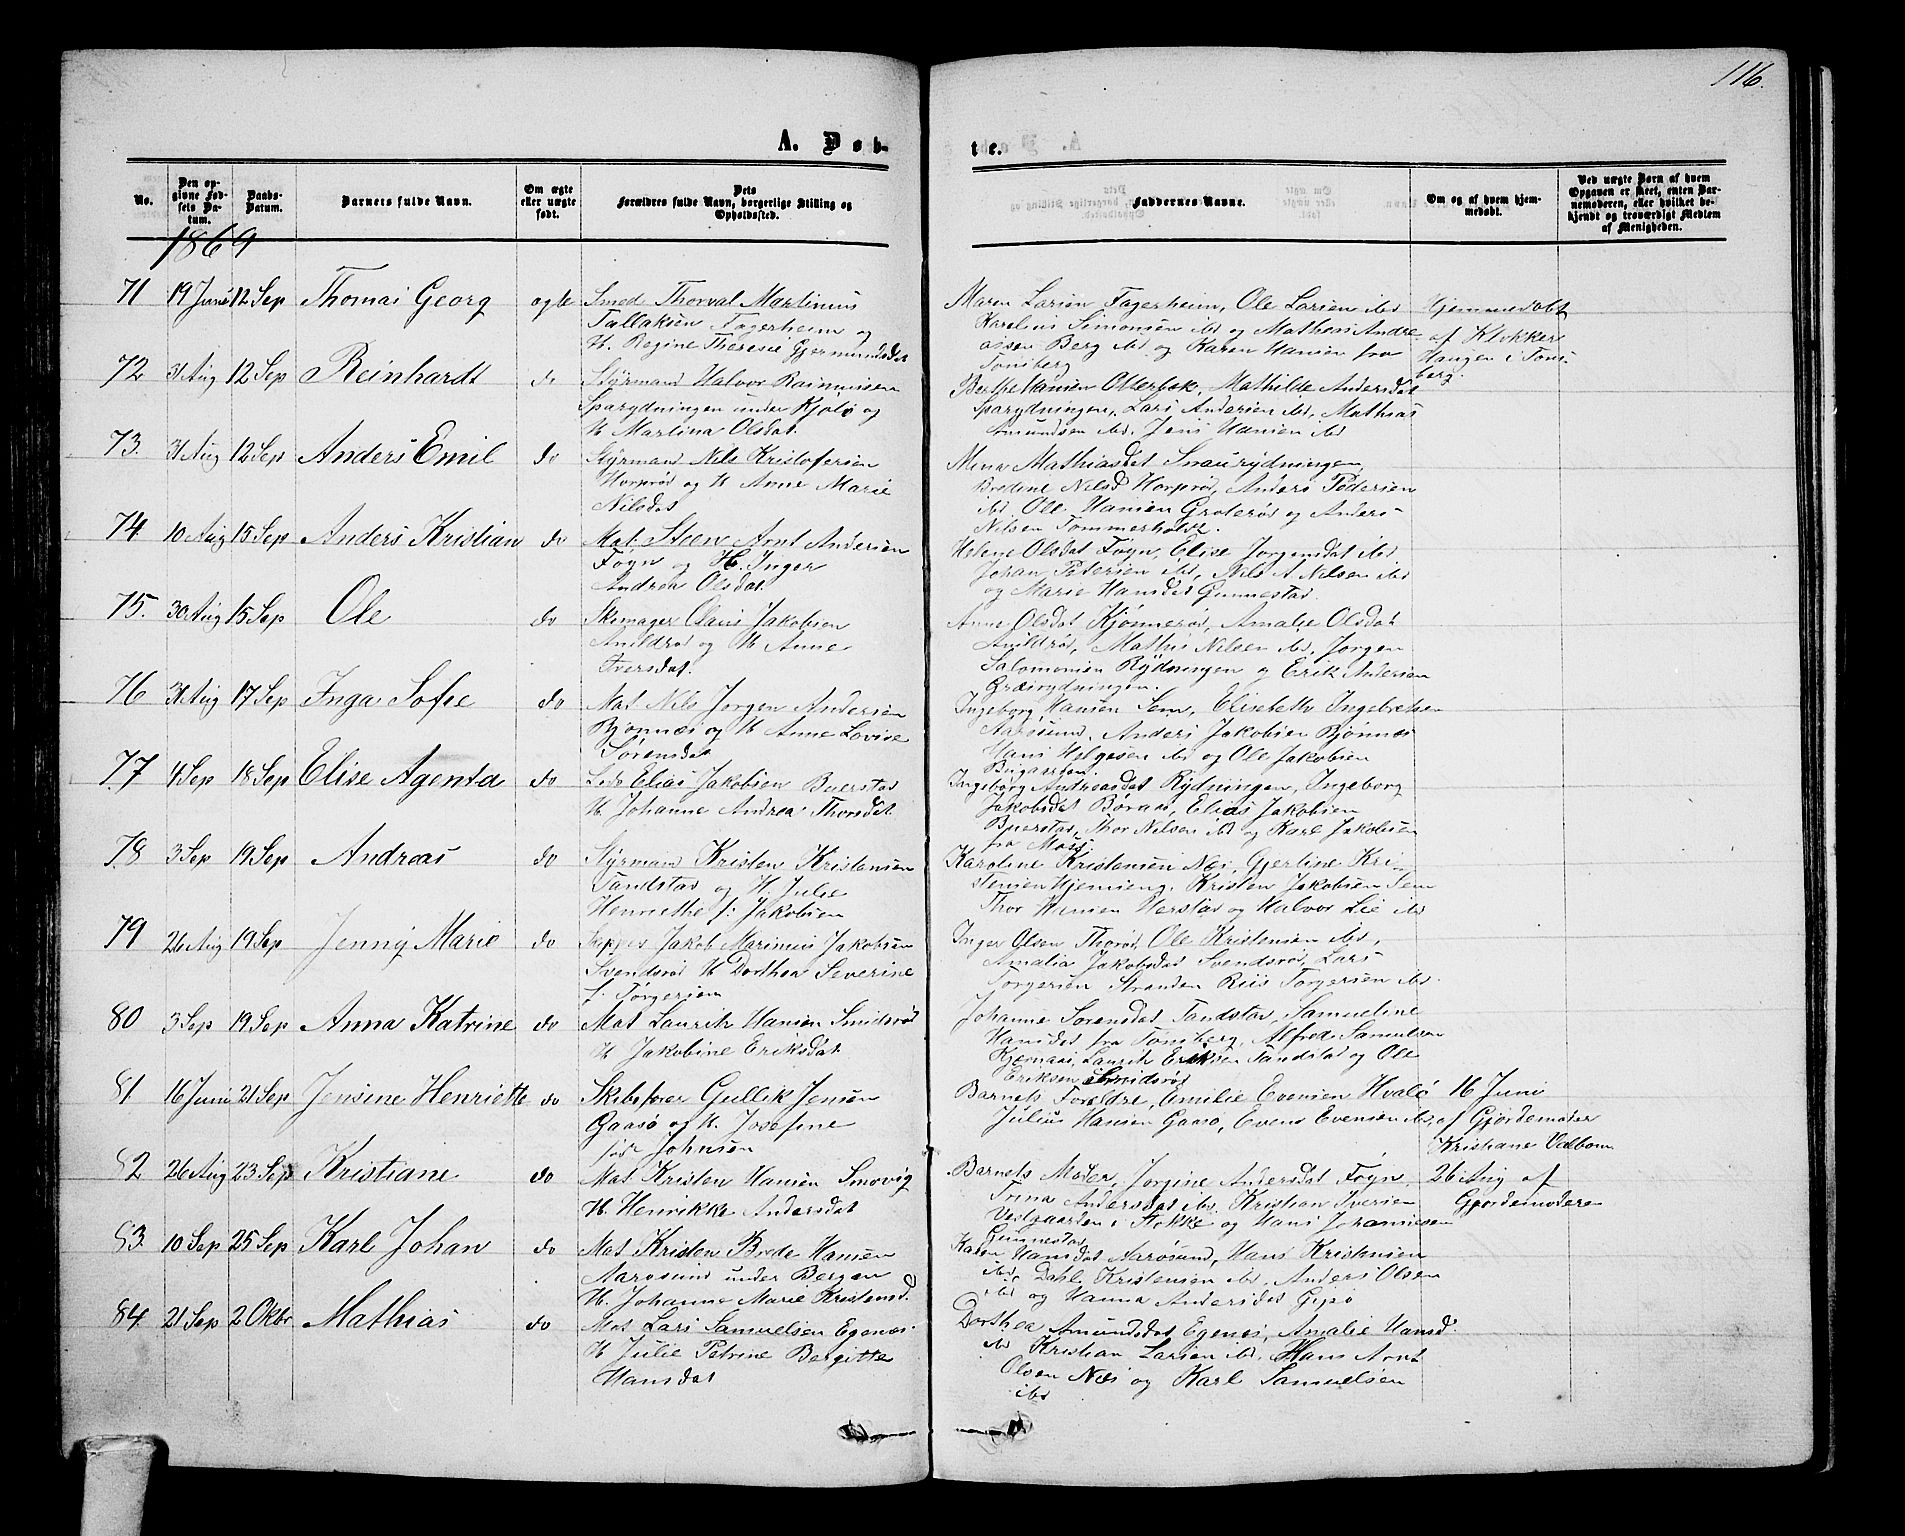 116.
A. Døb-
te.
No.
Den opgivne Fødsels Datum.
Daabs-Datum.
Barnets fulde Navn.
Om ægte eller uægte født.
Dets Forældres fulde Navn, borgerlige Stilling og Opholdssted.
Faddernes Navne.
Om og af hvem hjemmedøbt.
Ved uægte Børn af hvem Opgaven er skeet, enten Barnemoderen, eller hvilket bekjendt og troværdigt Medlem af Menigheden.
1869
71 19 Juni 12 Sep Thomas Georg ægte Smed Thorval Martinius
Tallaksen Fagerheim og
H. Regine Theresie Gjermundsdat
Maren Larsen Fagerheim, Ole Larsen ibd
Karelius Simonsen ibd og Mathias Andre-
assen Berg ibd og Karen Hansen fra
Tønsberg
Hjemmedøbt
af Klokker
Haugen i Tøns
berg.
72 31 Aug 12 Sep Reinhardt do Styrmand Halvor Rasmussen
Sparydningen under Kjølø og
H Martina Olsdat.
Berthe Hansen Otterbæk, Mathilde Andersdat
Sparydningen, Lars Andersen ibd, Mathias
Amundsen ibd, Jens Hansen ibd
73. 31 Aug 12 Sep Anders Emil do Styrmand Nils Kristofersen
Horprød og H Anne Marie
Nilsdat
Mina Mathiasdat Snaurydningen,
Bredine Nilsd Horprød, Anders Pedersen
ibd. Ole Hansen Groterød og Anders
Nilsen Tommerholt.
74. 10 Aug 15 Sep Anders Kristian do Mat. Steen Arnt Andersen
Føyn og H. Inger
Andrea Olsdat.
Helene Olsdat Føyn, Elise Jørgensdat ibd
Johan Petersen ibd, Nils A. Nilsen ibd
og Marie Hansdat Gunnestad.
75. 30 Aug 15 Sep Ole do Skomager Claus Jakobsen
Anildrød og H Anne
Iversdat.
Anne Olsdat Kjønnerød, Amalie Olsdat
Anildrød, Mathis Nilsen ibd, Jørgen
Salomonsen Rydningen og Erik Andersen
Græsrydningen.
76 31 Aug 17 Sep Inga Sofie do Mat Nils Jørgen Andersen
Bjønnæs og H Anne Lovise
Sørensdat
Ingeborg Hansen Sem, Elisabeth Ingebretsen
Aarøsund, Anders Jakobsen Bjønnæs
Hans Helgesen ibd og Ole Jakobsen
77. 4 Sep 18 Sep Elise Agenta do Lods Elias Jakobsen Buerstad
H Johanne Andrea Thorsdat.
Ingeborg Andreasdat Rydningen, Ingeborg
Jakobsdat Buerstad, Elias Jakobsen
Buerstad, Thor Nilsen ibd og Karl Jakobsen
fra Moss
78 3 Sep 19 Sep Andreas do Styrmand Kristen Kristensen
Sandstad og H. Julie
Henriethe f: Jakobsen
Karoline Kristensen Næs, Gjerline Kri-
stensen Hjemseng, Kristen Jakobsen Sem
Thor Hansen Herstad og Halvor Lie ibd
79 26 Aug 19 Sep Jenny Marie do Skipper Jakob Marinius Jakobsen
Svendsrød H Dorthea Severine
f. Torgersen
Inger Olsen Thorød, Ole Kristensen ibd,
Amalia Jakobsdat Svendsrød, Lars
Torgersen Stranden Riis Torgersen ibd.
80 3 Sep 19 Sep Anna Katrine do Mat Lauritz Hansen Smidsrød
H Jakobine Eriksdat.
Johanne Sørensdat Sandstad, Samueline
Hansdat fra Tønsberg, Alfred Samuelsen
Kjærnaas, Lauritz Eriksen Sandstad og Ole
Eriksen Smidsrød
81 16 Juni 21 Sep Jensine Henriette do Skibsfører Gullik Jensen
Gaasø og H. Josefine
født Johnsen
Barnets Forældre, Emilie Evensen Hvalø
Julius Hansen Gaasø, Evens Evensen ibd,
16 Juni
af Gjordemoder
Kristiane Valbom
82 26 Aug 23 Sep Kristiane do Mat Kristen Hansen Smovig
H. Henrikke Andersdat
Barnets Moder, Jørgine Andersdat Føyn,
Trina Andersdat ibd, Kristian Iversen
Vestgaarden i Stokke og Hans Johannesen
Gunnestad
26 Aug af
Gjordemoderen
83. 10 Sep 25 Sep Karl Johan do Mat Kristen Brede Hansen
Aarøsund under Bergan
H. Johanne Marie Kristensd.
Karen Hansdat Aarøsund, Hans Kristensen
ibd, Dahl Kristensen ibd, Anders Olsen
ibd og Hanna Andersdat Gipø
84. 21 Sep 2 Oktbr Mathias do Mat Lars Samuelsen Egenæs.
H Julie Petrine Bergitte
Hansdat
Dorthea Amundsdat Egenæs, Amalie Hansd.
ibd Kristian Larsen ibd, Hans Arnt
Olsen Næs og Karl Samuelsen
ibd